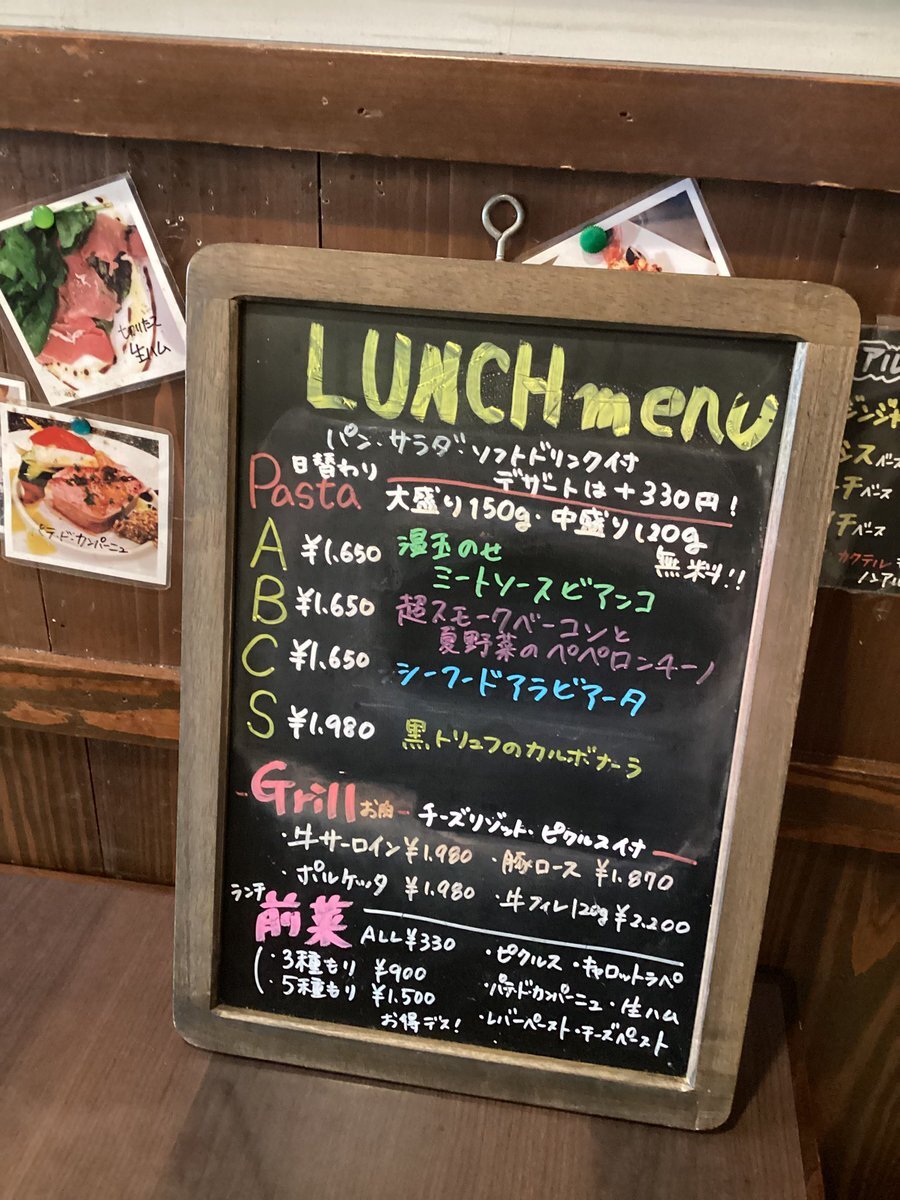 LUNCH menu
パン・サラダ・ソフトドリンク付
デザートは+330円!
日替わり
Pasta
大盛り150g・中盛り120g
無料!!
A ¥1.650 温玉のせ
ミートソースビアンコ
B ¥1.650 超スモークベーコンと
夏野菜のペペロンチーノ
C ¥1.650 シーフードアラビアータ
S ¥1.980 黒トリュフのカルボナーラ
Grill お肉 チーズリゾット・ピクルス付
・牛サーロイン ¥1.980 ・豚ロース ¥1.870
・ポルケッタ ¥1.980 ・牛フィレ120g ¥2.200
ランチ
前菜 ALL ¥330
・3種もり ¥900
・5種もり ¥1.500
お得デス!
・ピクルス ・キャロットラペ
・パテドカンパーニュ ・生ハム
・レバーペースト ・チーズペースト
切りたて
生ハム
パテ・ド・カンパーニュ
ジンジャ
ベース
ベース
ベース
カクテル
ノンアル